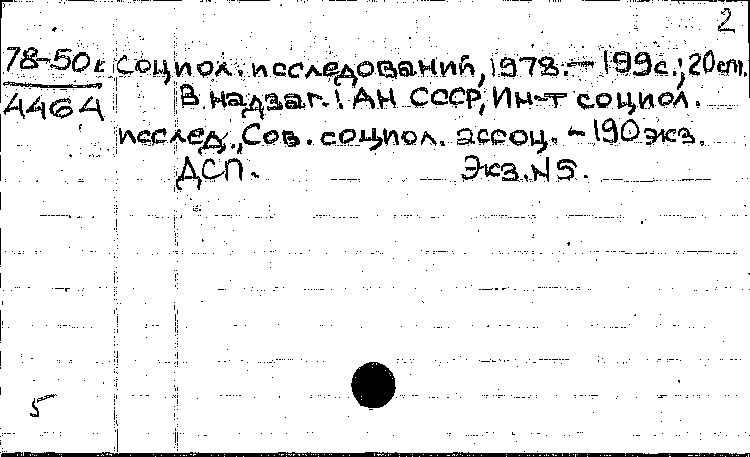 2
78-50к социол. исследований, 1978. – 199с.; 20см.
4464 В надзаг.: АН СССР, Ин-т социол.
исслед., Сов. социол. ассоц. – 190экз.
ДСП. Экз. N 5.
5